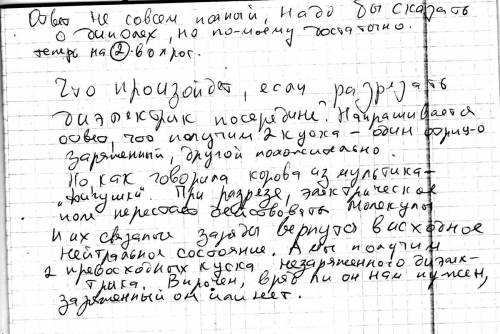 Ответ не совсем полный, надо бы сказать
о диполях, но по-моему достаточно.
теперь на 2 вопрос.
Что произойдет, если разрезать
диэлектрик посередине? Напрашивается
ответ, что получим 2 куска – один отриц-о
заряженный, другой положительно.
Но как говорила корова из мультика –
"фигушки". При разрезе, электрическое
поле перестает действовать. Молекулы
и их связаные заряды вернутся в исходное
нейтральное состояние. А мы получим
2 превосходных куска незаряженного диэлек-
трика. Впрочем, вряд ли он нам нужен,
заряженный он или нет.